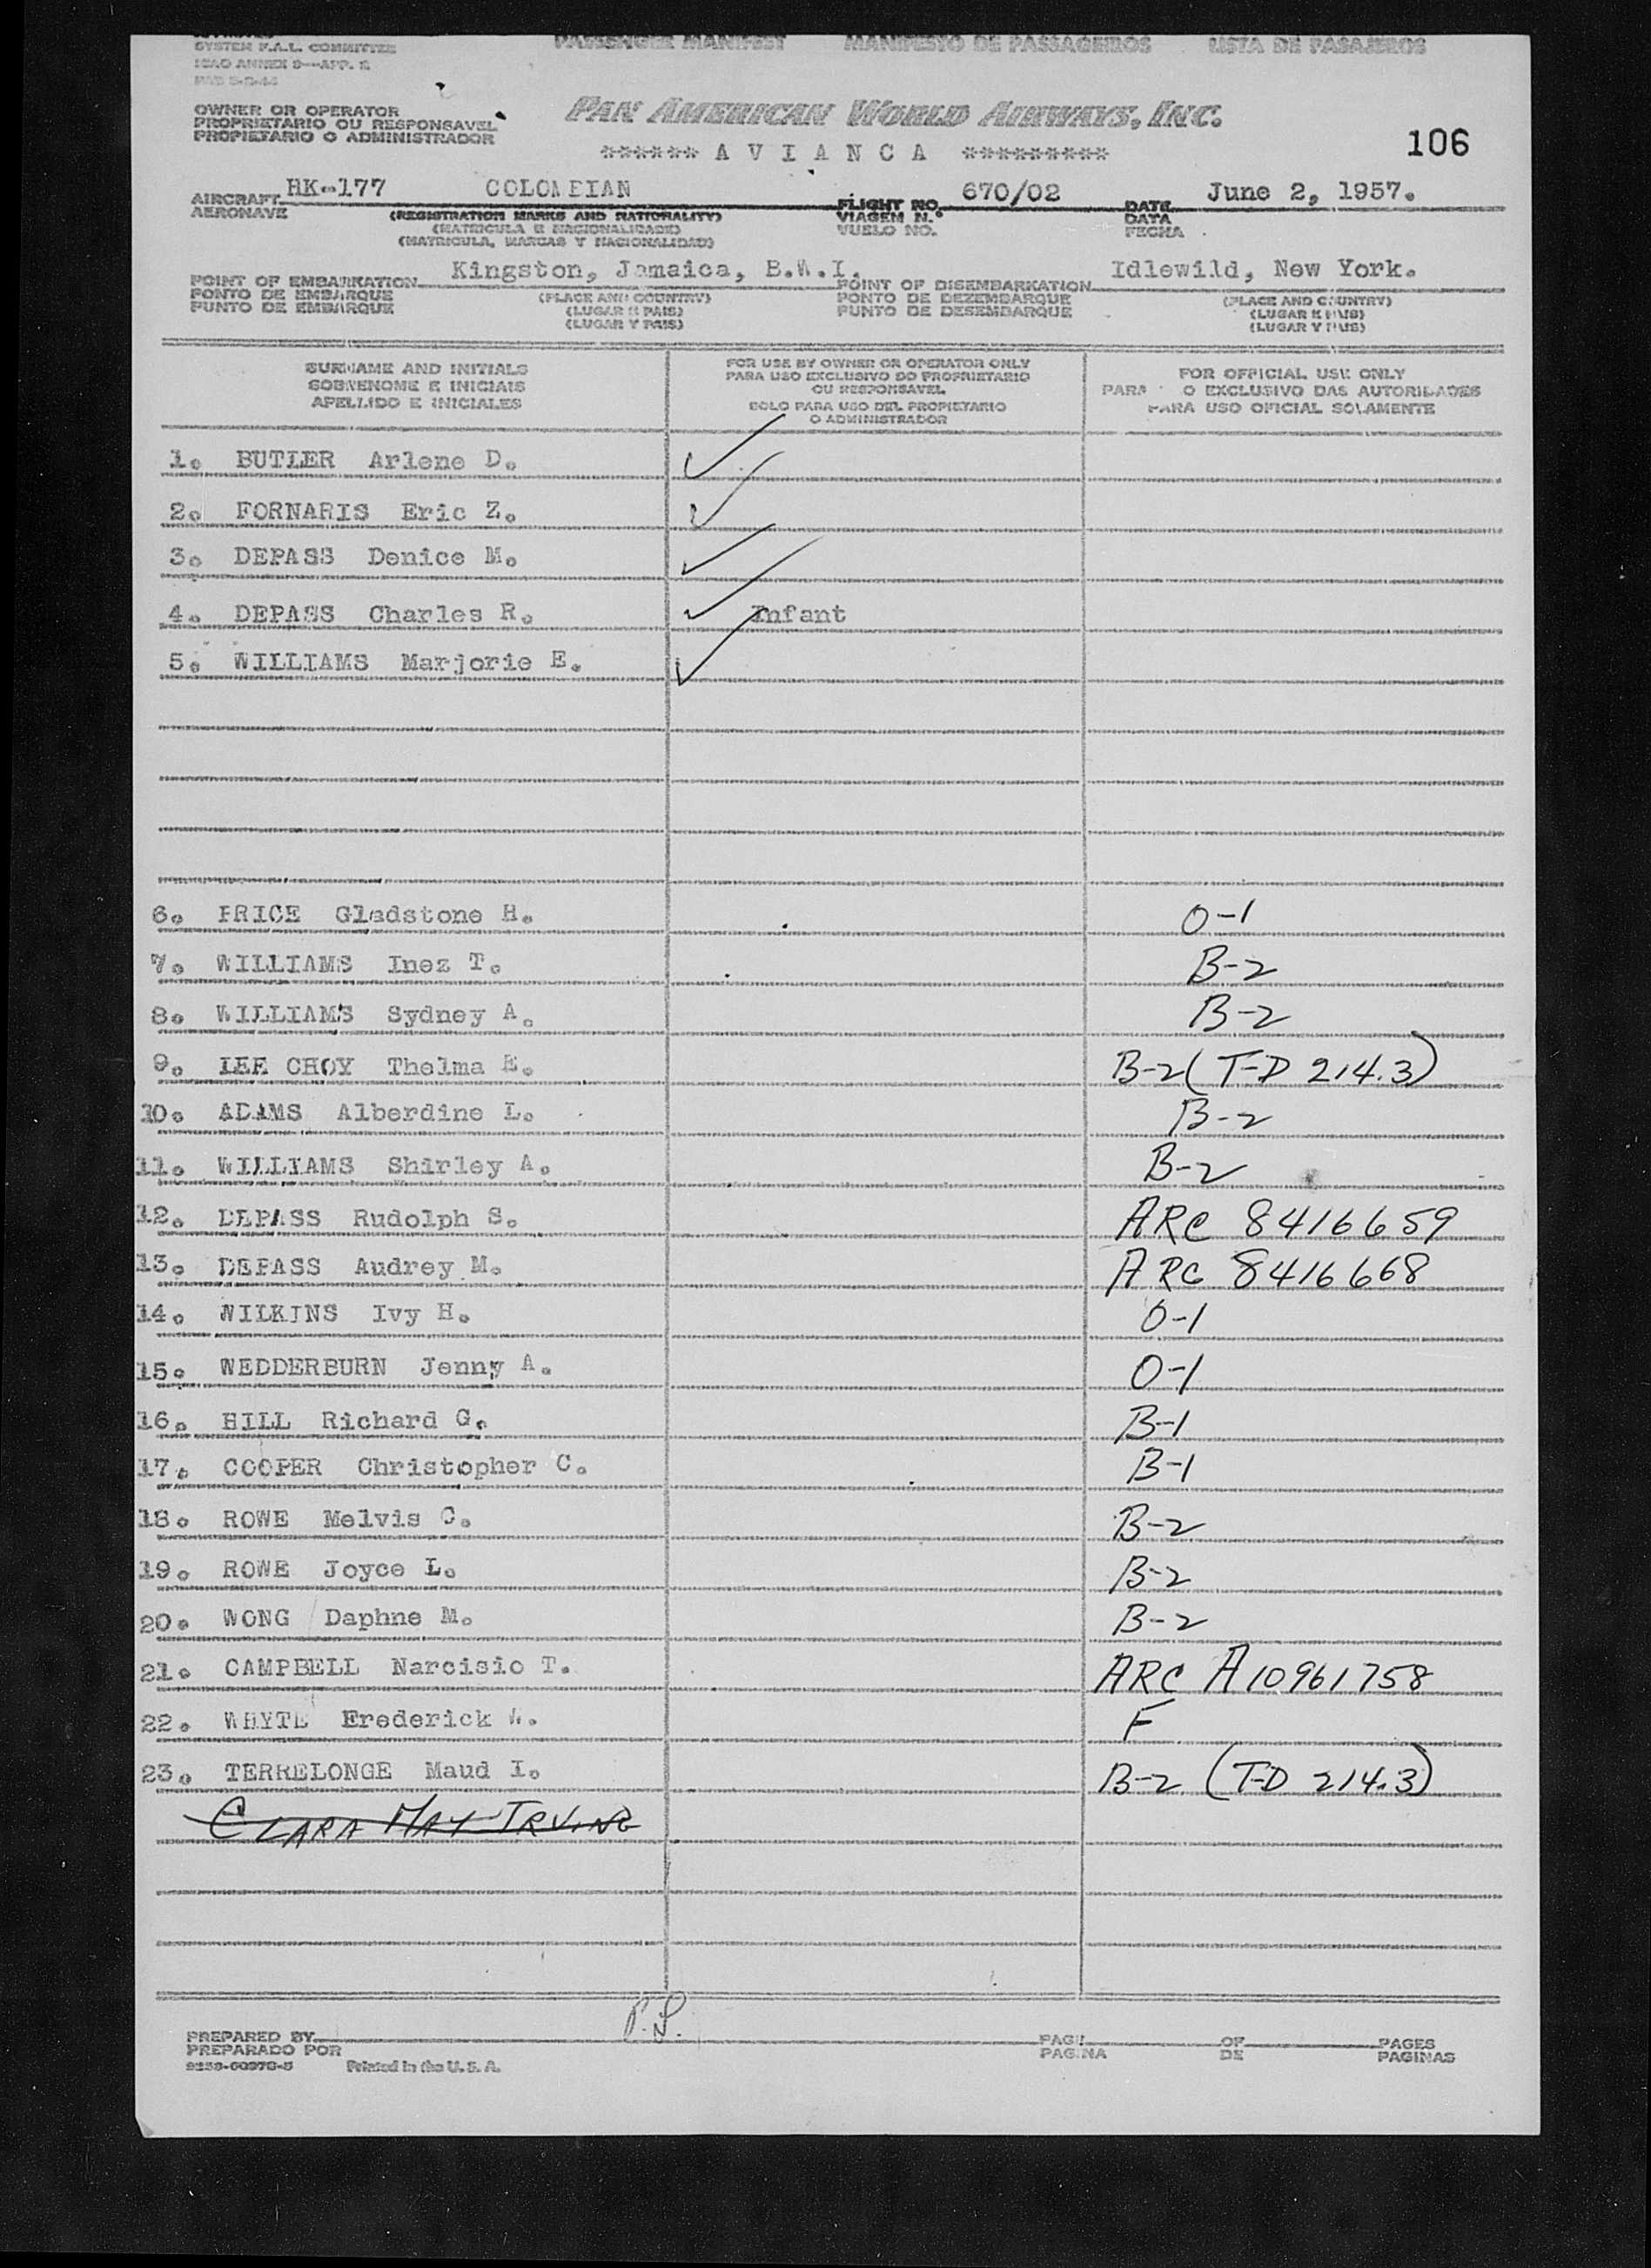 SYSTEM F.A.L. COMMITTEE
ICAO ANNEX 9—APP. 2
PASSENGER MANIFEST MANIFESTO DE PASSAGEIROS LISTA DE PASAJEROS
OWNER OR OPERATOR
PROPRIETARIO OU RESPONSAVEL
PROPIETARIO O ADMINISTRADOR
PAN AMERICAN WORLD AIRWAYS, INC.
****** A V I A N C A *********
106
AIRCRAFT HK-177 COLOMBIAN FLIGHT NO. 670/02 DATE June 2, 1957.
AERONAVE (REGISTRATION MARKS AND NATIONALITY) VIAGEM N.° DATA
(MATRICULA E NACIONALIDADE) VUELO NO. FECHA
(MATRICULA, MARCAS Y NACIONALIDAD)
POINT OF EMBARKATION Kingston, Jamaica, B.W.I. POINT OF DISEMBARKATION Idlewild, New York.
PONTO DE EMBARQUE (PLACE AND COUNTRY) PONTO DE DEZEMBARQUE (PLACE AND COUNTRY)
PUNTO DE EMBARQUE (LUGAR E PAIS) PUNTO DE DESEMBARQUE (LUGAR E PAIS)
(LUGAR Y PAIS) (LUGAR Y PAIS)
SURNAME AND INITIALS
SOBRENOME E INICIAIS
APELLIDO E INICIALES
FOR USE BY OWNER OR OPERATOR ONLY
PARA USO EXCLUSIVO DO PROPRIETARIO
OU RESPONSAVEL
SOLO PARA USO DEL PROPIETARIO
O ADMINISTRADOR
FOR OFFICIAL USE ONLY
PARA O EXCLUSIVO DAS AUTORIDADES
PARA USO OFICIAL SOLAMENTE
1. BUTLER Arlene D.
2. FORNARIS Eric Z.
3. DEPASS Denice M.
4. DEPASS Charles R. Infant
5. WILLIAMS Marjorie E.
6. PRICE Gladstone H. O-1
7. WILLIAMS Inez T. B-2
8. WILLIAMS Sydney A. B-2
9. LEE CHOY Thelma E. B-2 (T-D 214.3)
10. ADAMS Alberdine L. B-2
11. WILLIAMS Shirley A. B-2
12. DEPASS Rudolph S. ARC 8416659
13. DEPASS Audrey M. ARC 8416668
14. WILKINS Ivy H. O-1
15. WEDDERBURN Jenny A. O-1
16. HILL Richard G. B-1
17. COOPER Christopher C. B-1
18. ROWE Melvis C. B-2
19. ROWE Joyce L. B-2
20. WONG Daphne M. B-2
21. CAMPBELL Narcisio T. ARC A10961758
22. WHYTE Frederick W. F
23. TERRELONGE Maud I. B-2 (T-D 214.3)
CLARA MAY IRVING
P.S.
PREPARED BY PAGE OF PAGES
PREPARADO POR PAGINA DE PAGINAS
Printed in the U. S. A.